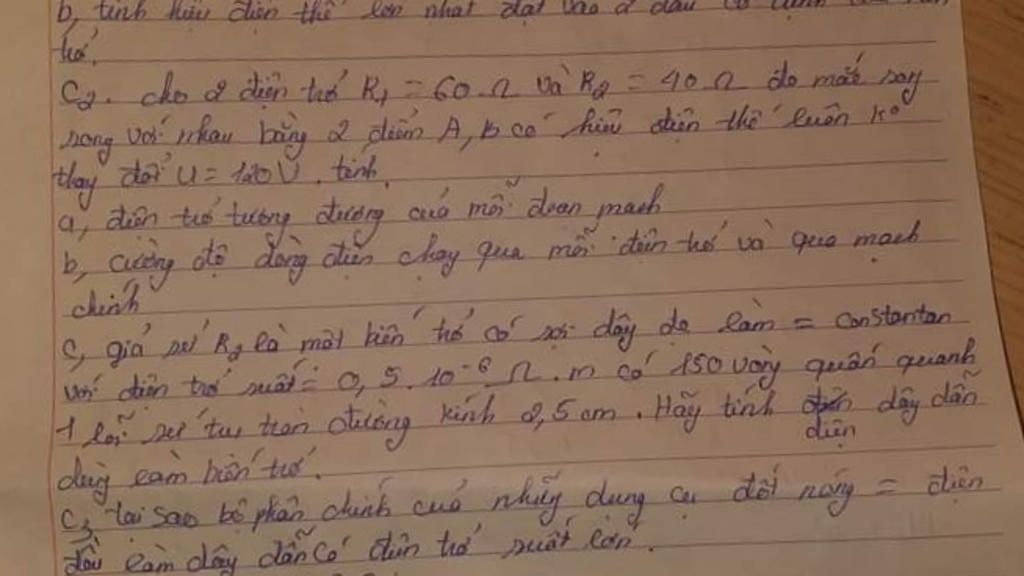 b, tính hiệu điện thế lớn nhất đặt vào 2 đầu cố định
trở.
C2. cho 2 điện trở R1 = 60 Ω và R2 = 40 Ω đo mắc song
song với nhau bằng 2 điểm A, B có hiệu điện thế luôn ko
thay đổi U = 120V. tính.
a, điện trở tương đương của mỗi đoạn mạch
b, cường độ dòng điện chạy qua mỗi điện trở và qua mạch
chính
c, giả sử R2 là một biến trở có sợi dây đo làm = constantan
với điện trở suất = 0,5.10-6 Ω.m có 150 vòng quấn quanh
1 lõi sứ trụ tròn đường kính 2,5cm. Hãy tính dây dẫn
điện
dùng làm biến trở.
C3 tại sao bộ phận chính của những dụng cụ đốt nóng = điện
đều làm dây dẫn có điện trở suất lớn.